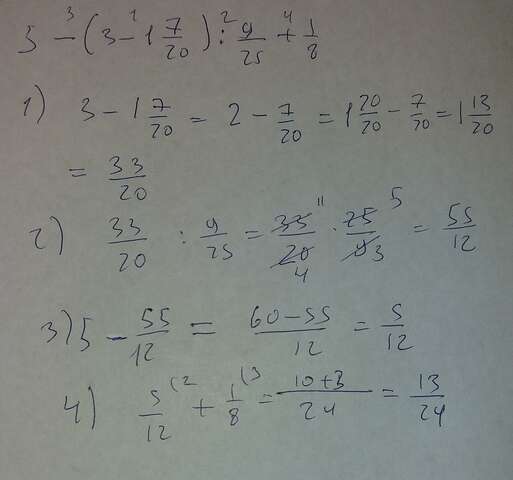 5 - (3 - 1 7/20) : 9/25 + 1/8
3 1 2 4
1) 3 - 1 7/20 = 2 - 7/20 = 1 20/20 - 7/20 = 1 13/20
= 33/20
2) 33/20 : 9/25 = 33/20 · 25/9 = 55/12
11 5
4 3
3) 5 - 55/12 = 60-55/12 = 5/12
4) 5/12 (2 + 1/8 (3 = 10+3/24 = 13/24